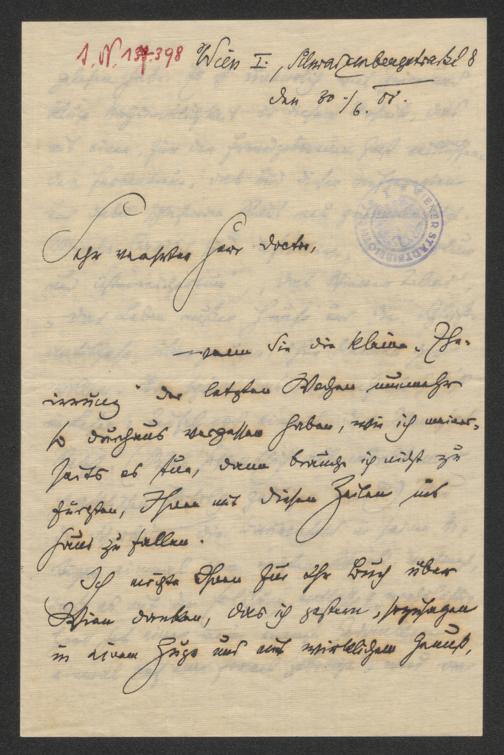 I. N. 137.398
Wien I., Schwarzenbergstraße 8
den 30./6. 08.
WIENER STADTBIBLIOTHEK
Sehr verehrter Herr Doctor,
wenn Sie die kleine „Ihr-
irrung“ der letzten Wochen nunmehr
so durchaus vergessen haben, wie ich meiner-
seits es tue, dann brauche ich nicht zu
fürchten, Ihnen mit diesen Zeilen ins
Haus zu fallen.
Ich möchte Ihnen für Ihr Buch über
Wien danken, das ich gestern, sozusagen
in einem Zuge und mit wirklichem Genuß,